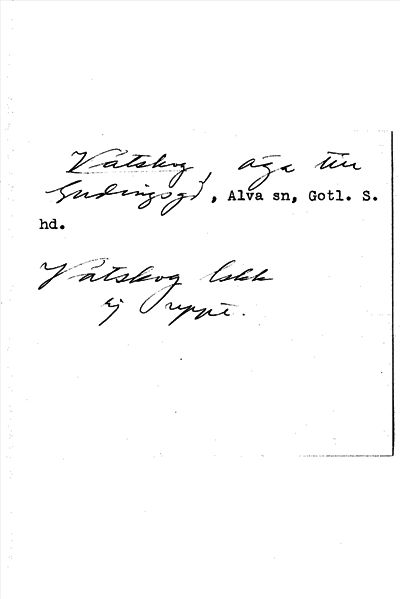 Våtskog, äga till
Gudingsgd, Alva sn, Gotl. S.
hd.
Våtskog lskk
ej uppt.